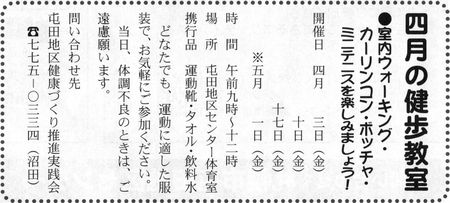 四月の健歩教室
●室内ウォーキング・
カーリンコン・ボッチャ・
ミニテニスを楽しみましょう！
開催日　四月　三日（金）
十日（金）
十七日（金）
※五月　一日（金）
時間　午前九時～十二時
場所　屯田地区センター体育室
携行品　運動靴・タオル・飲料水
どなたでも、運動に適した服
装で、お気軽にご参加ください。
当日、体調不良のときは、ご
遠慮願います。
問い合わせ先
屯田地区健康づくり推進実践会
☎七七五－〇三三四（沼田）